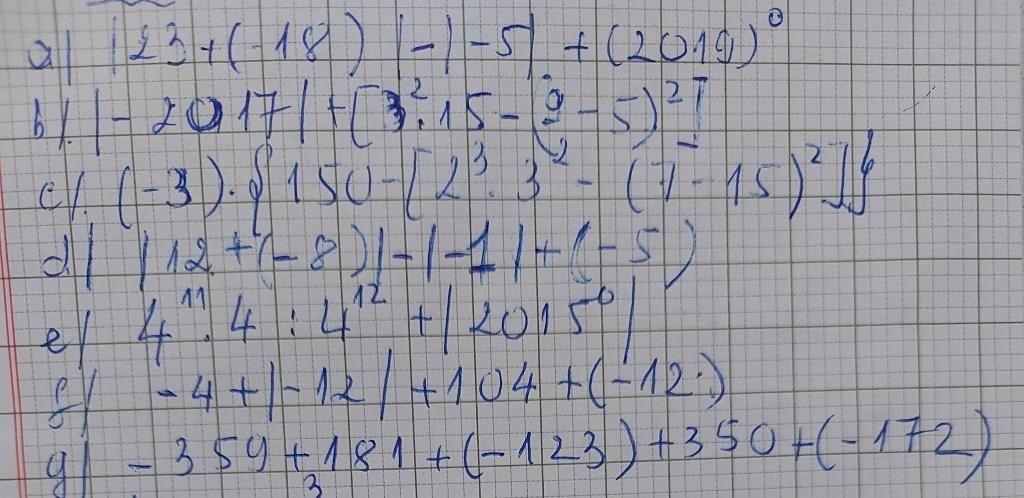 a) |23+(-18)|-|-5|+(2019)⁰
b). |-2017|+[3².15-(9-5)²]
c). (-3).{150-[2³.3²-(7-15)²]}
d) |12+(-8)|-|-1|+(-5)
e) 4¹¹.4:4¹²+|2015⁰|
f) -4+|-12|+104+(-12)
g) -359+181+(-123)+350+(-172)
3